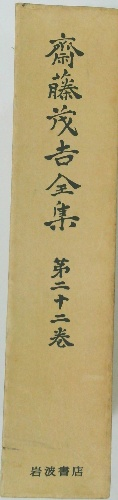 齋藤茂吉全集
第二十二卷
岩波書店